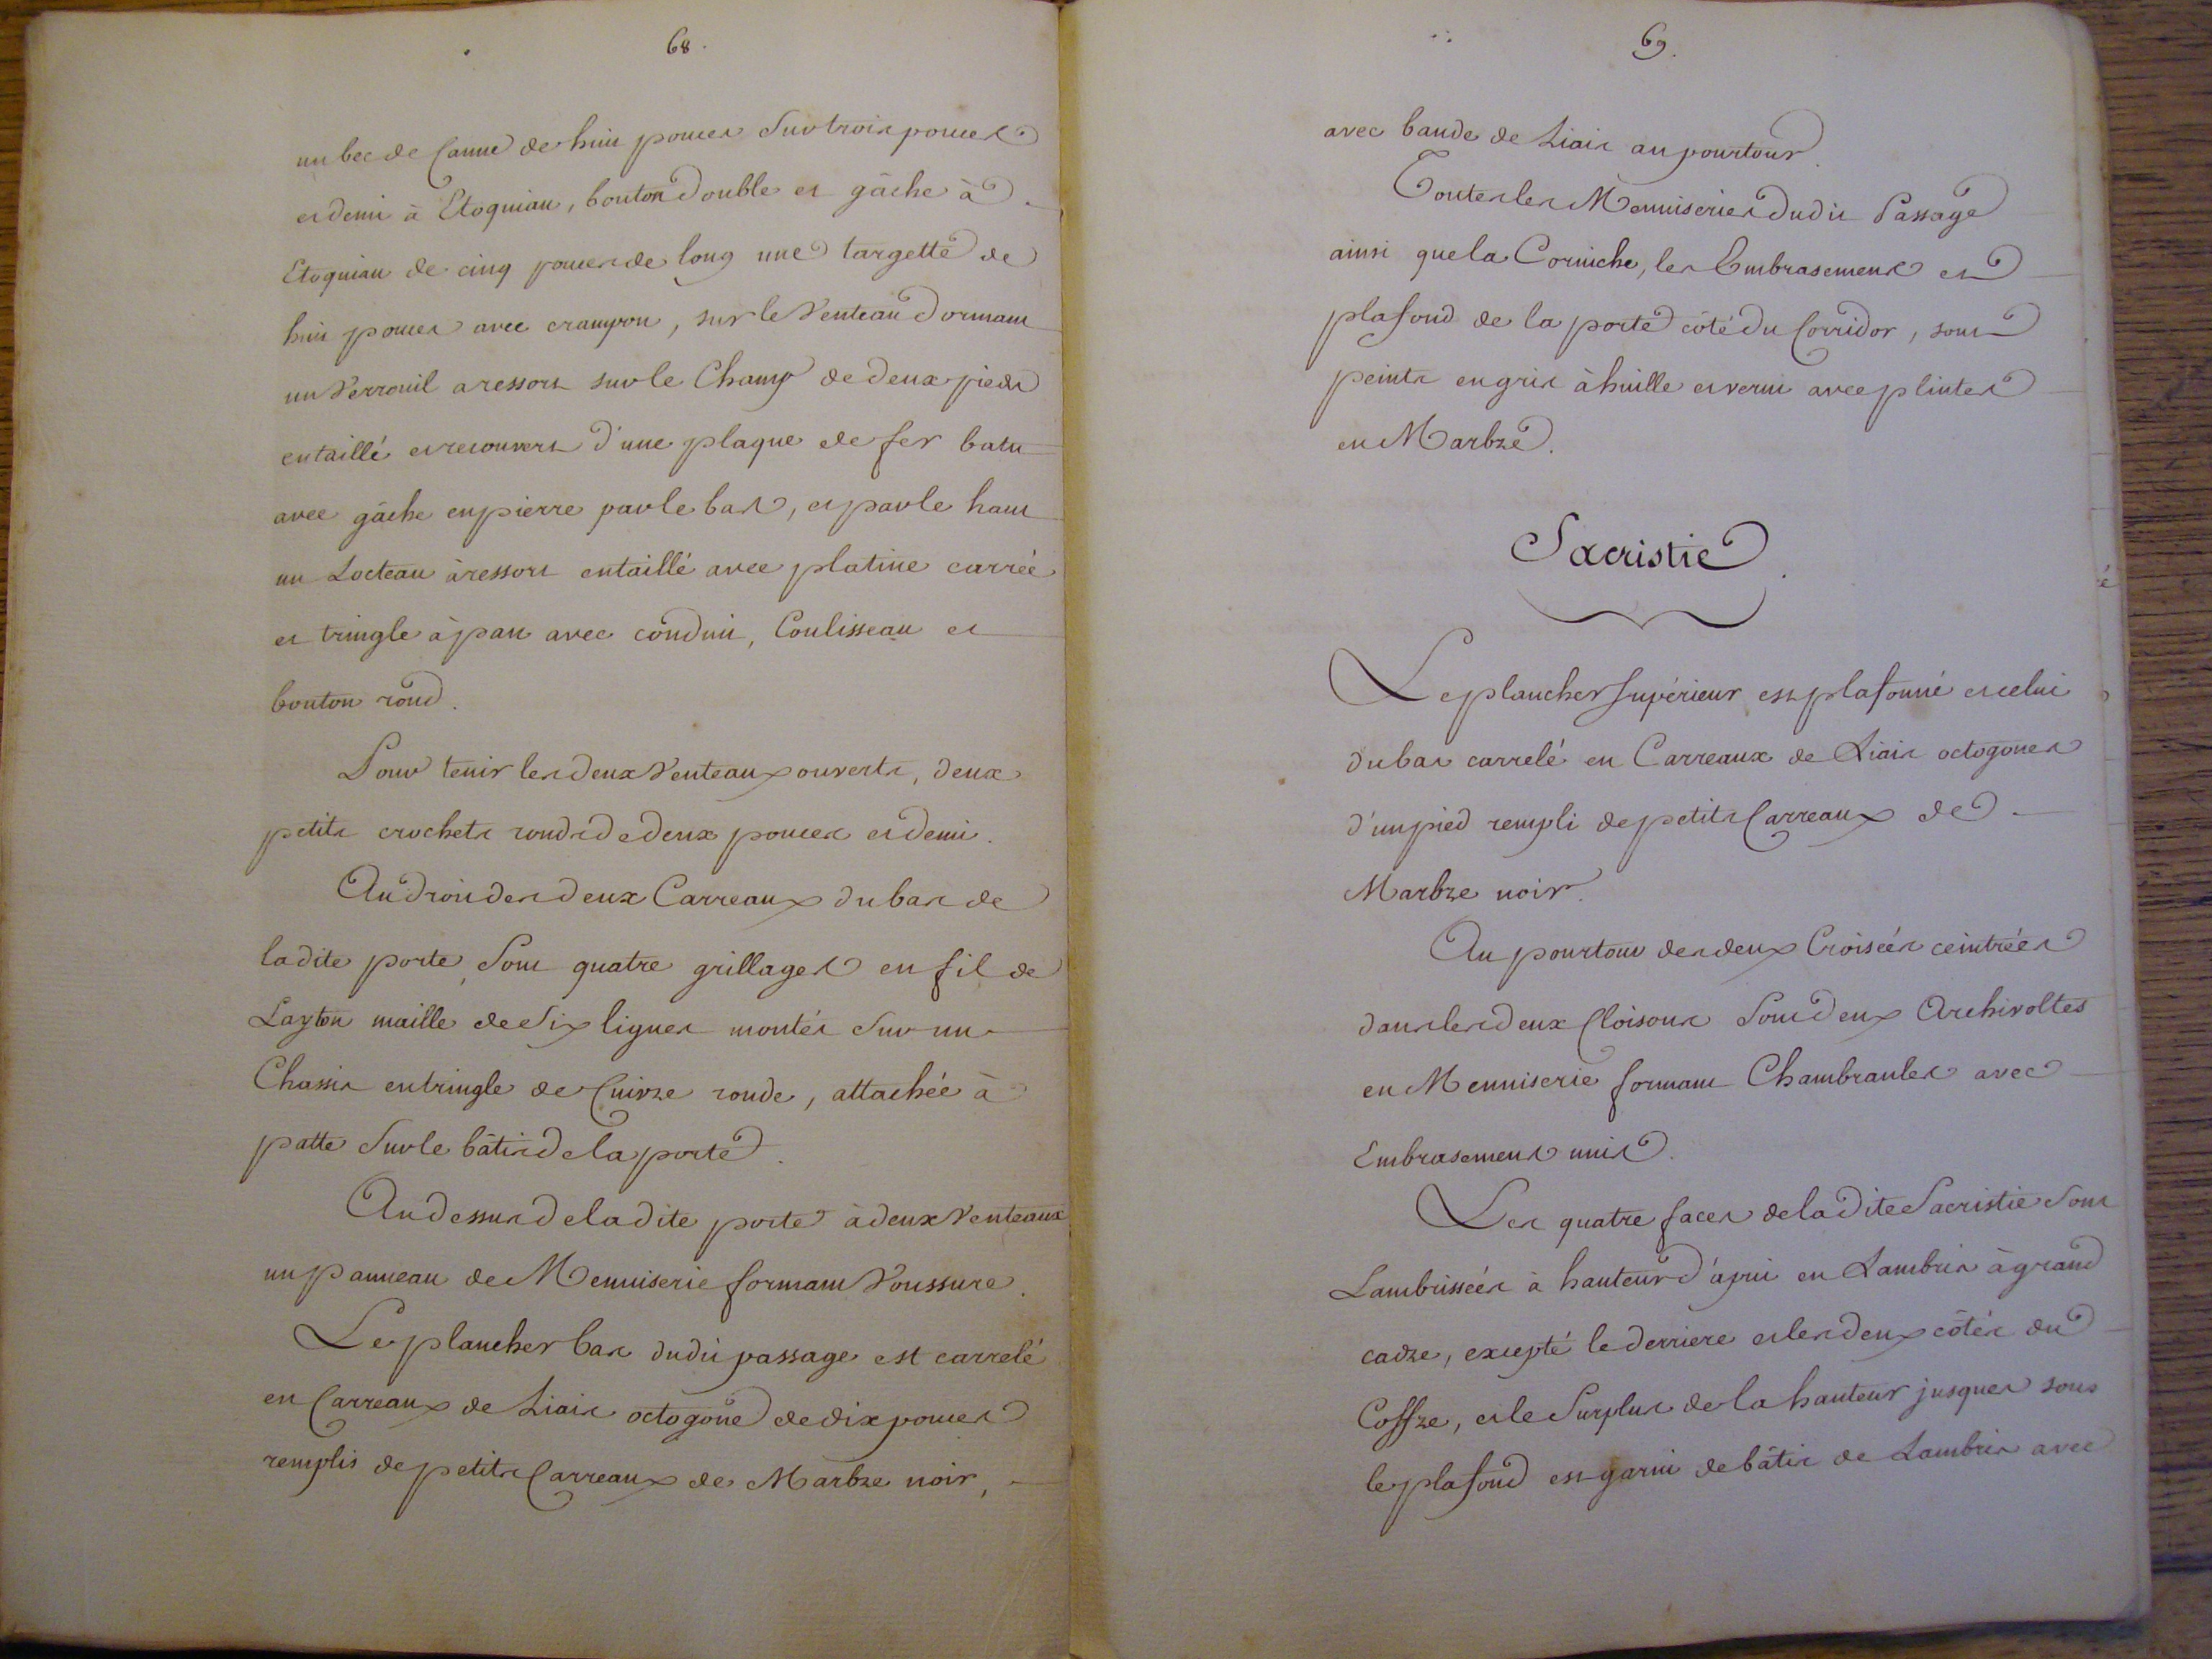 68.
un bec de Canne de huit pouces Sur trois pouces
et demi à Etoquiau, bouton double et gâche à
Etoquiau de cinq pouces de long une targette de
huit pouces avec crampon, sur le Venteau dormant
un Verrouil a ressort sur le Champ de deux pieds
entaillé et recouvert d'une plaque de fer batu
avec gâche en pierre par le bas, et par le haut
un Locteau à ressort entaillé avec platine carrée
et tringle à pan avec conduit, Coulisseau et
bouton rond.
Pour tenir les deux Venteaux ouverts, deux
petits crochets ronds de deux pouces et demi.
Au droit des deux Carreaux du bas de
ladite porte, Sont quatre grillages en fil de
Layton maille de Six lignes montés Sur un
Chassis en tringle de Cuivre ronde, attachée à
patte Sur le bâtis de la porte.
Au dessus de ladite porte à deux Venteaux
un panneau de Menuiserie formant Voussure.
Le plancher bas dudit passage est carrelé
en Carreaux de Liais octogone de dix pouces
remplis de petits Carreaux de Marbre noir,
69.
avec bande de Liais au pourtour.
Toutes les Menuiseries dudit Passage
ainsi que la Corniche, les Embrasements et
plafond de la porte côté du Corridor, sont
peints en gris à huille et verni avec plintes
en Marbre.
Sacristie.
Le plancher Supérieur est plafonné et celui
du bas carrelé en Carreaux de Liais octogones
d'un pied rempli de petits Carreaux de
Marbre noir.
Au pourtour des deux Croisées ceintrées
dans les deux Cloisons Sont deux Archivoltes
en Menuiserie formant Chambranles avec
Embrasements unis.
Les quatre faces de la dite Sacristie Sont
Lambrissées à hauteur d'apui en Lambris à grand
cadre, excepté le derriere et les deux côtés du
Coffre, et le Surplus de la hauteur jusques sous
le plafond est garni de bâtis de Lambris avec